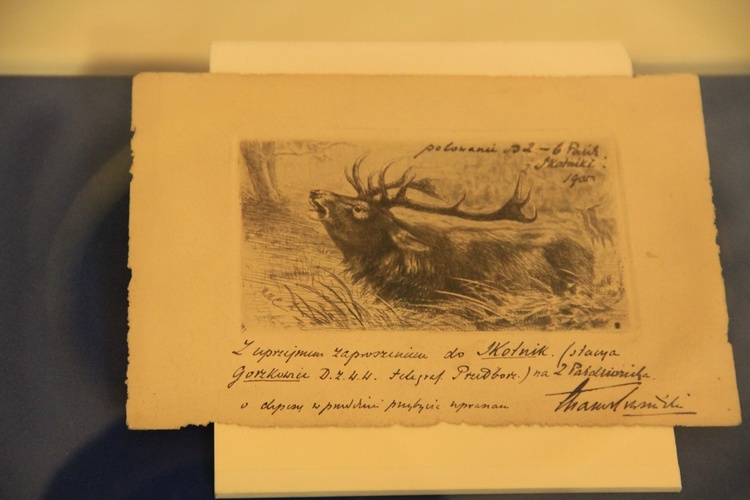 polowanie 2–6 Paźdz.
Skotniki
1900
Z uprzejmem zaproszeniem do Skotnik. (stacya
Gorzkowice D.Ż.W.W. telegraf. Przedborz.) na 2 Października.
o depeszę w przybycia upraszam